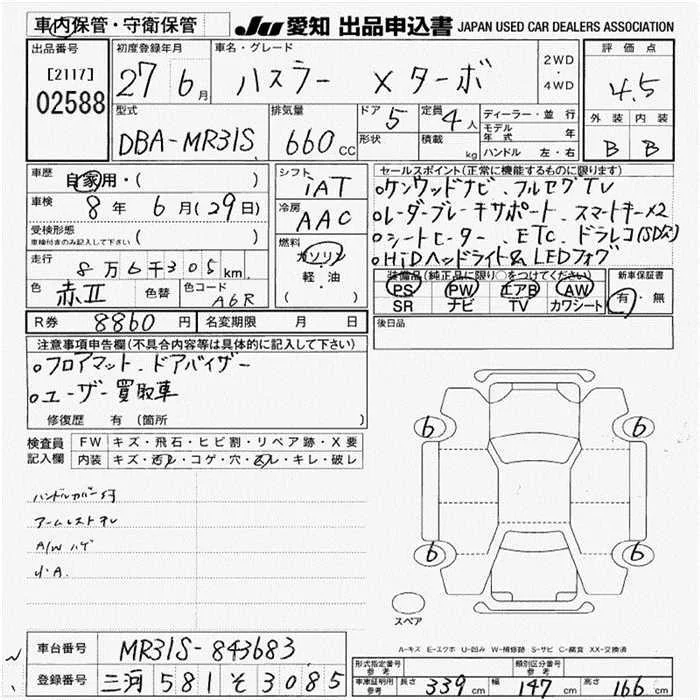 車内保管・守衛保管
JU 愛知 出品申込書 JAPAN USED CAR DEALERS ASSOCIATION
出品番号
[2117]
02588
初度登録年月
27 6月
車名・グレード
ハスラー Xターボ
2WD
・
4WD
評価点
4.5
外装 内装
B B
型式
DBA-MR31S
排気量
660cc
ドア 5
形状
定員 4人
積載 kg
ディーラー・並行
モデル年式 年
ハンドル 左・右
車歴
自家用・( )
車検 8年 6月(29日)
受検形態
車検付きのみ記入して下さい ( )
走行
8万6千305km
色
赤II
色替
色コード
A6R
シフト
IAT
冷房
AAC
燃料
ガソリン
軽・油
( )
セールスポイント(正常に機能するものに限ります)
○ケンウッドナビ、フルセグTV
○レーダーブレーキサポート、スマートキー×2
○シートヒーター、ETC、ドラレコ(SD欠)
○HiDヘッドライト& LEDフォグ
装備品(純正品に限り○をつけてください)
PS PW エアB AW
SR ナビ TV カワシート
新車保証書
有・無
R券 8860円 名変期限 月 日
後日品
注意事項申告欄(不具合内容等は具体的に記入して下さい)
○フロアマット、ドアバイザー
○ユーザー買取車
修復歴 有 (箇所 )
検査員記入欄
FW キズ・飛石・ヒビ割・リペア跡・X要
内装 キズ・汚レ・コゲ・穴・スレ・キレ・破レ
ハンドルカバー付
アームレストスレ
A/W ハゲ
小A.
6 6
6 6
スペア
A-キズ E-エクボ U-凹み W-補修跡 S-サビ C-腐食 XX-交換済
車台番号 MR31S-843683
登録番号 三河 581 そ 3085
形式指定番号
参考
類別区分番号
参考
車庫証明用
参考
長さ 339cm 幅 147cm 高さ 166cm